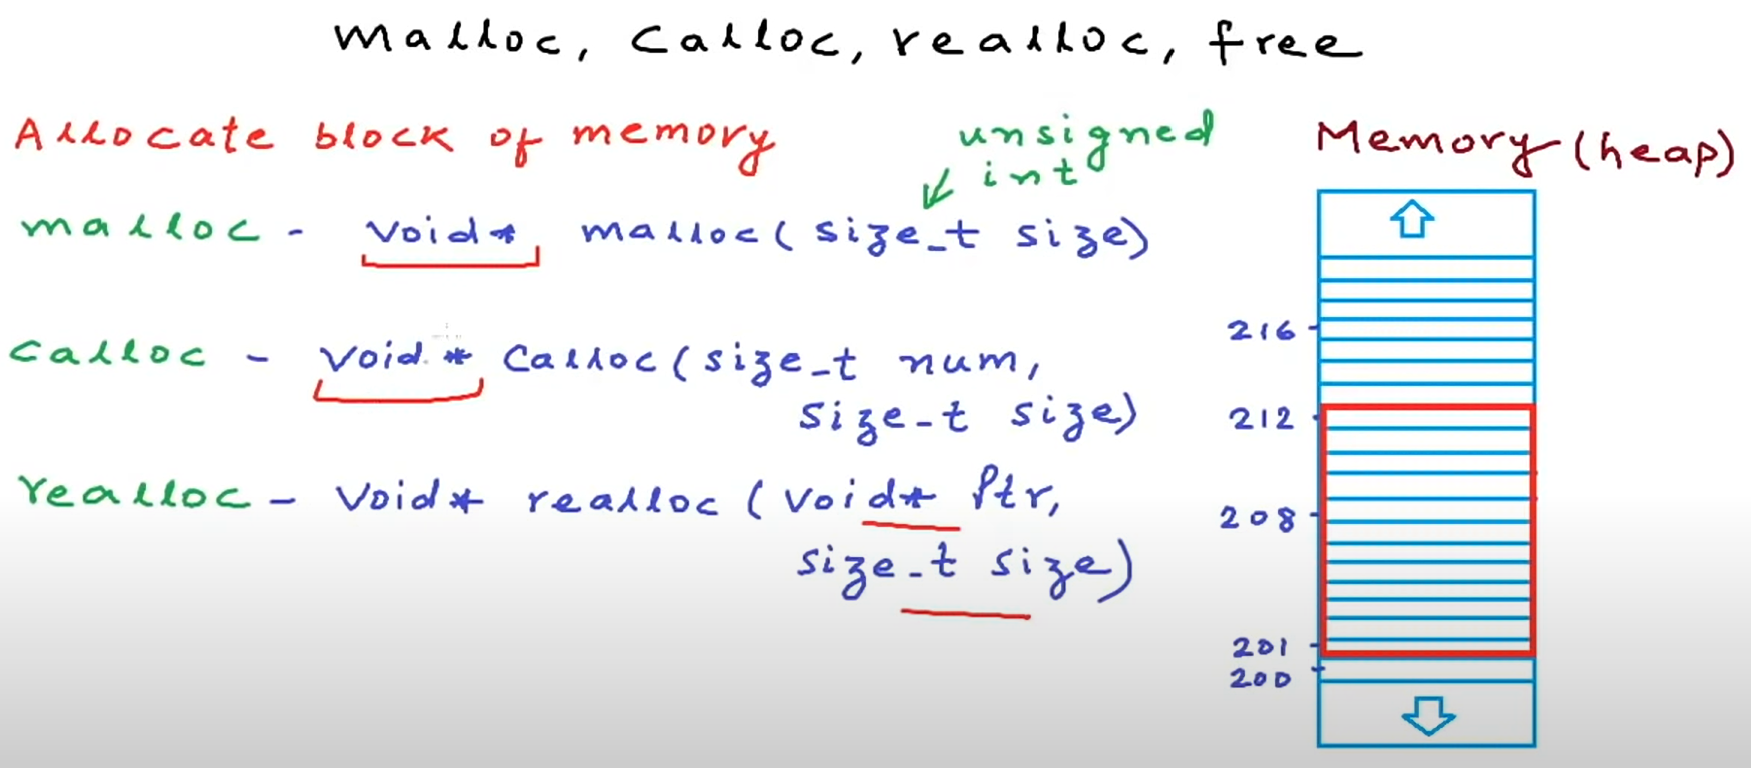 malloc, calloc, realloc, free
Allocate block of memory
unsigned
int
malloc - void* malloc(size_t size)
calloc - void* calloc(size_t num,
size_t size)
realloc - void* realloc(void* Ptr,
size_t size)
Memory (heap)
216
212
208
201
200